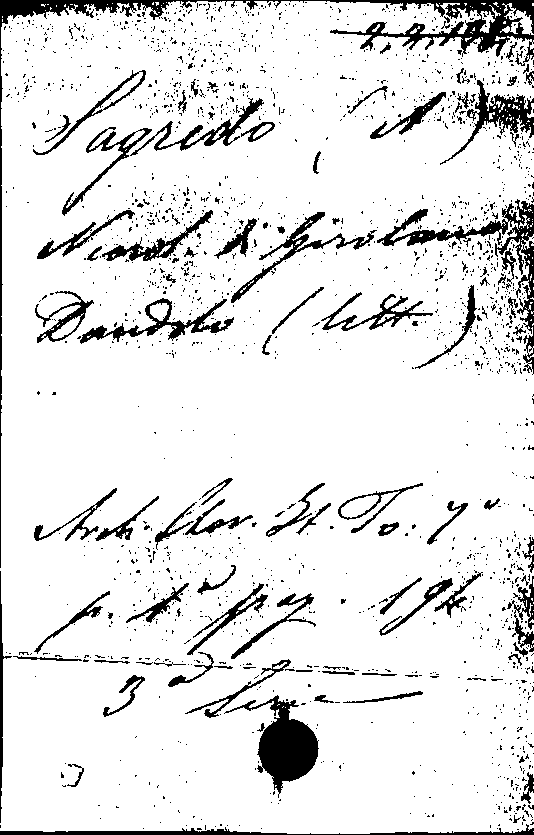 Sagredo (A)
Nicol. di Girolamo
Dandolo (lett.)
Arch. Stor. It. To: 7º
p. 1ª pag. 194
3ª Serie